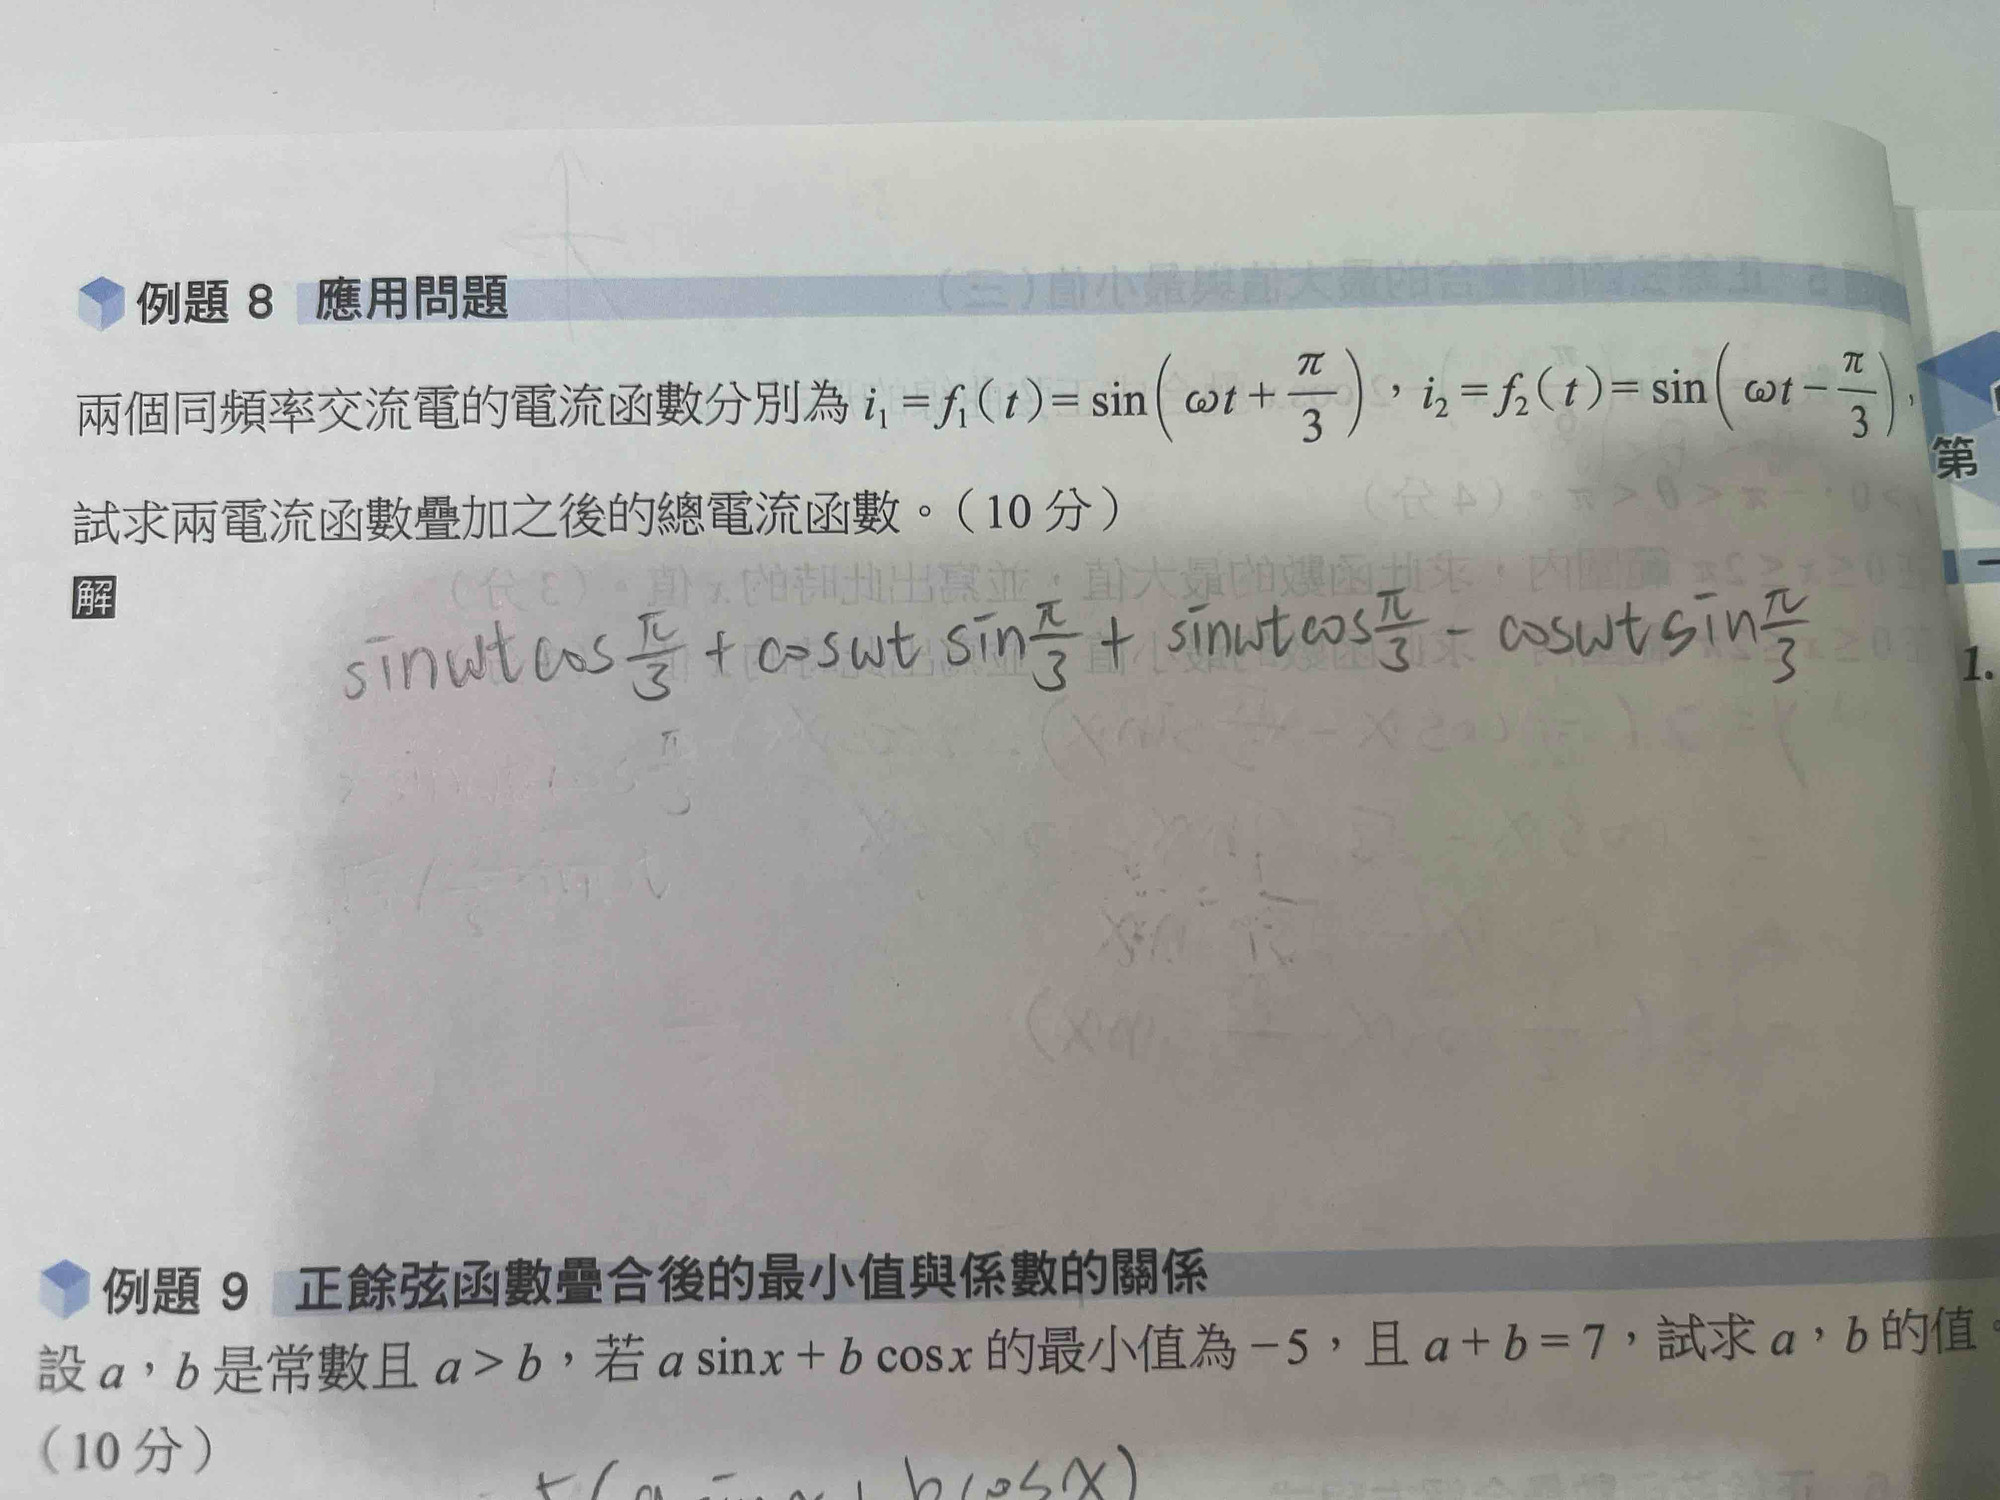 例題 8 應用問題
兩個同頻率交流電的電流函數分別為 i₁ = f₁(t) = sin(ωt + π/3),i₂ = f₂(t) = sin(ωt − π/3),
試求兩電流函數疊加之後的總電流函數。(10 分)
解
sinwt cos π/3 + coswt sin π/3 + sinwt cos π/3 − coswt sin π/3
例題 9 正餘弦函數疊合後的最小值與係數的關係
設 a,b 是常數且 a > b,若 a sinx + b cosx 的最小值為 −5,且 a + b = 7,試求 a,b 的值。
(10 分)
第
1.